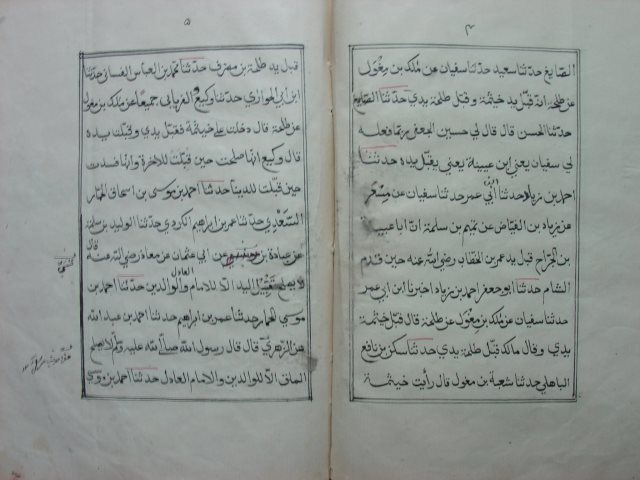 ٤
الصايغ حدثنا سعيد حدثنا سفيان عن ملك بن مغول
عن طلحة انه قبل يد خيثمة وقبل طلحة يدي حدثنا الصايغ
حدثنا الحسن قال قال لي حسين الجعفي ربما فعله
لي سفيان يعني ابن عيينة يعني يقبل يده حدثنا
احمد بن زياد حدثنا ابن ابي عمر حدثنا سفيان عن مسعر
عن زياد بن الفياض عن تميم بن سلمة ان ابا عبيدة
بن الجراح قبل يد عمر بن الخطاب رضي الله عنه حين قدم
الشام حدثنا ابو جعفر احمد بن زياد اخبرنا ابن ابي عمر
حدثنا سفيان عن ملك بن مغول عن طلحة قال قبل خيثمة
يدي وقال مالك قبل طلحة يدي حدثنا سكن بن نافع
الباهلي حدثنا شعبة بن مغول قال رأيت خيثمة
٥
قبل يد طلحة بن مصرف حدثنا محمد بن العباس الغساني حدثنا
ابن ابي الموازي حدثنا وكيع و الفريابي جميعا عن ملك بن مغول
عن طلحة قال دخلت على خيثمة فقبل يدي وقبلت يده
قال وكيع انها صلحت حين قبلت للاخرة وانها فسدت
حين قبلت للدنيا حدثنا احمد بن موسى بن اسحاق الحمار
السعدي حدثنا عمر بن ابراهيم الكردي حدثنا الوليد بن سلمة
عن عبادة بن عن ابي عثمان عن معاذ رضي الله عنه قال
لا يصلح تقبيل اليد الا للامام العادل والوالدين حدثنا احمد بن
موسى الحمار حدثنا عمر بن ابراهيم حدثنا احمد بن عبد الله
عن الزهري قال قال رسول الله صلى الله عليه وسلم لا يصلح
الملق الا للوالدين والامام العادل حدثنا احمد بن موسى